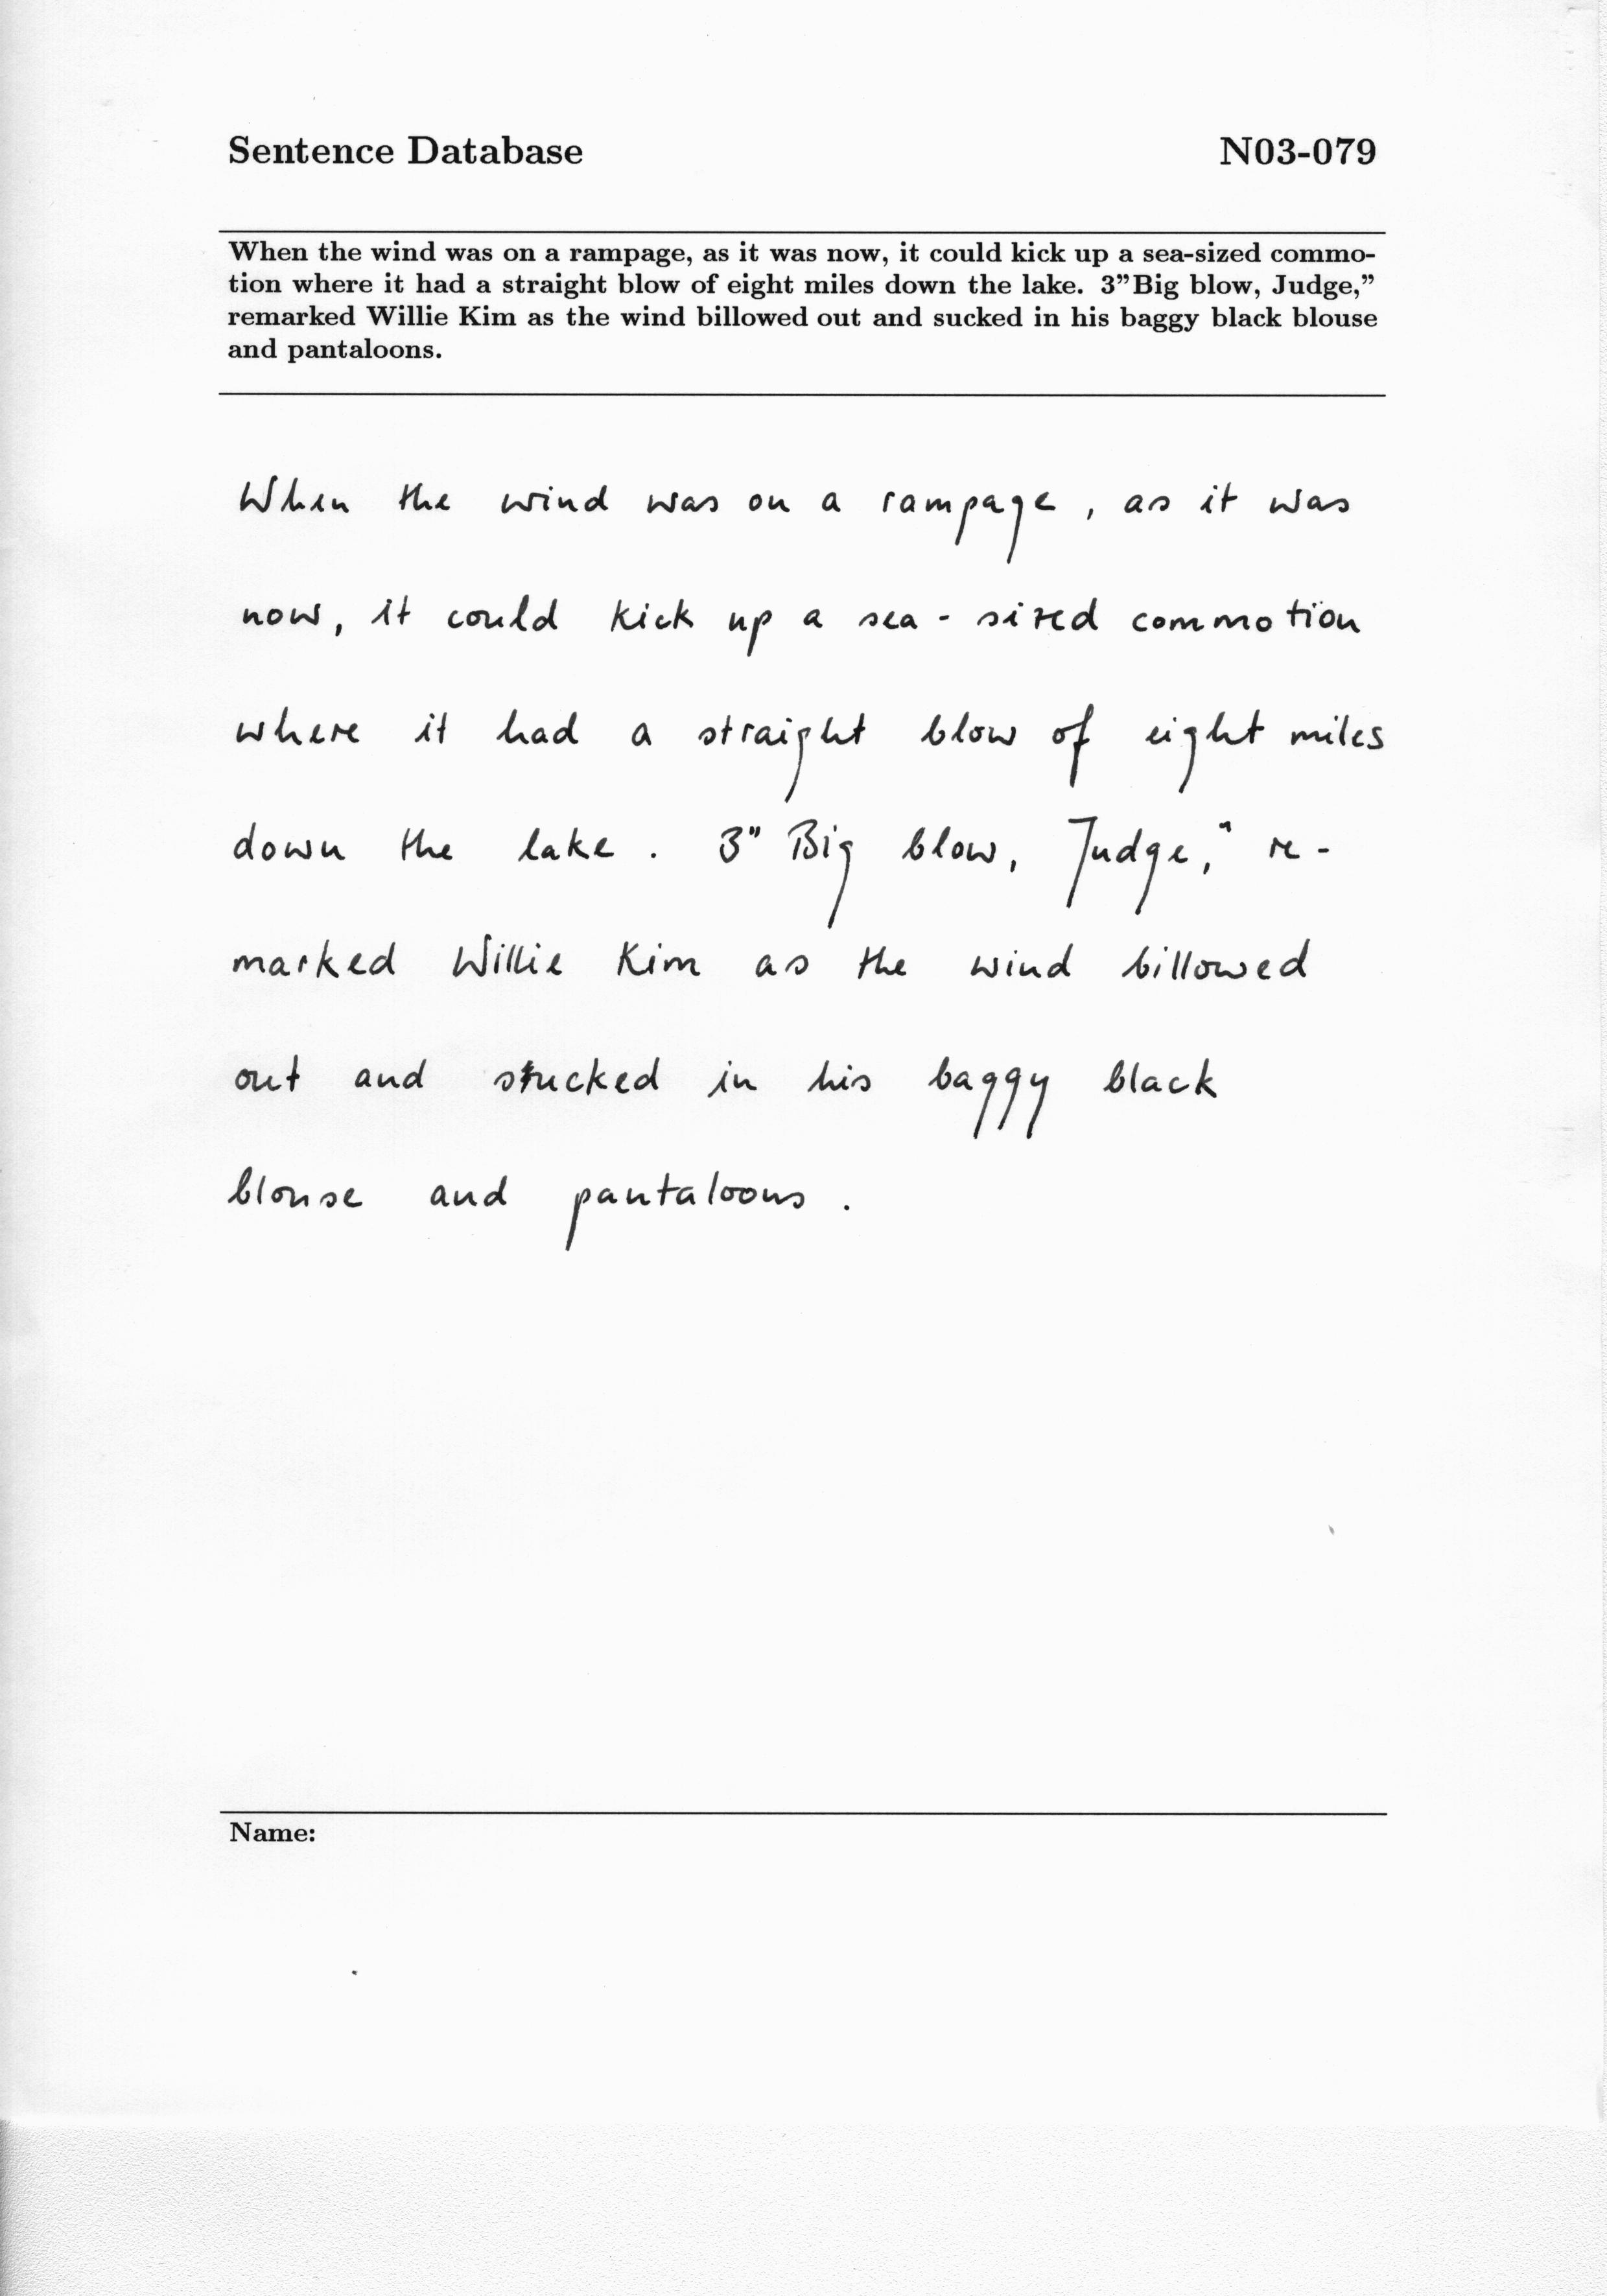 Sentence Database N03-079
When the wind was on a rampage, as it was now, it could kick up a sea-sized commo-
tion where it had a straight blow of eight miles down the lake. 3”Big blow, Judge,”
remarked Willie Kim as the wind billowed out and sucked in his baggy black blouse
and pantaloons.
When the wind was on a rampage, as it was
now, it could kick up a sea - sized commotion
where it had a straight blow of eight miles
down the lake. 3" Big blow, Judge," re-
marked Willie Kim as the wind billowed
out and stucked in his baggy black
blouse and pantaloons.
Name: